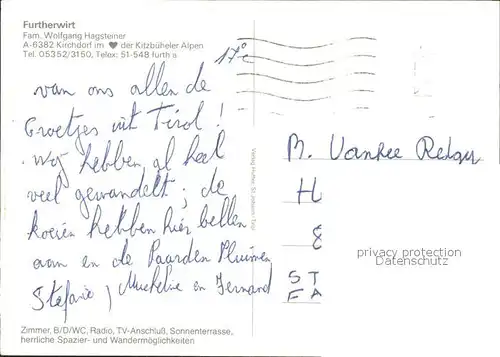 Furtherwirt
Fam. Wolfgang Hagsteiner
A-6382 Kirchdorf im ♥ der Kitzbüheler Alpen
Tel. 05352/3150, Telex: 51-548 furth a
17°c
van ons allen de
Groetjes uit Tirol !
Wij hebben al heel
veel gewandelt ; de
koeien hebben hier bellen
aan en de Paarden Pluimen
Stefanie,
en Fernand
M. Vankee
H
8
ST
FA
privacy protection
Datenschutz
Zimmer, B/D/WC, Radio, TV-Anschluß, Sonnenterrasse,
herrliche Spazier- und Wandermöglichkeiten